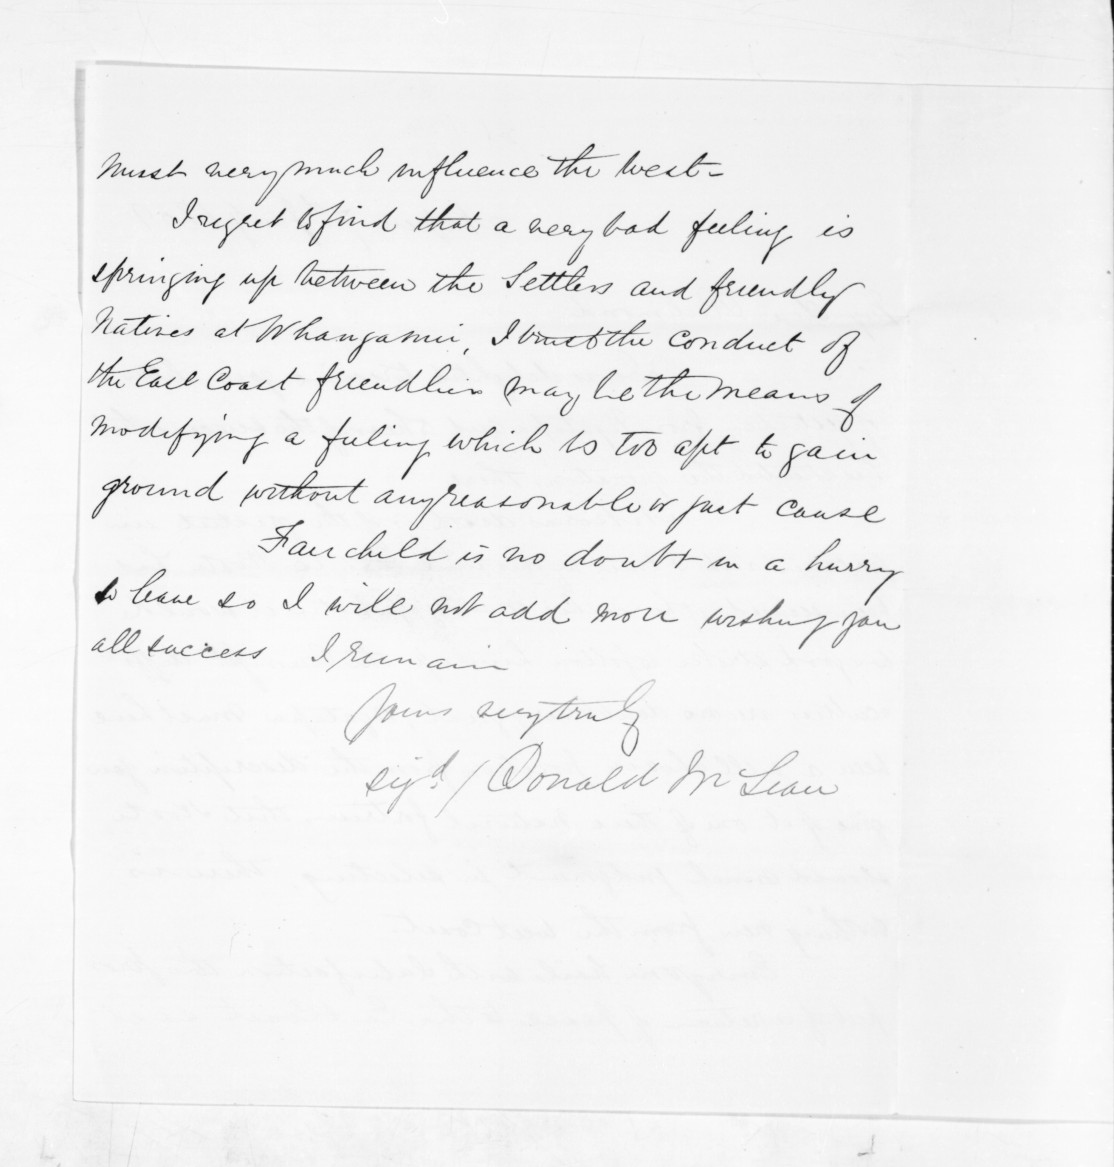 must very much influence the West -
I regret to find that a very bad feeling is
springing up between the Settlers and friendly
Natives at Whanganui, I trust the conduct of
the East Coast friendlies may be the means of
modifying a feeling which is too apt to gain
ground without any reasonable or just cause
Fairchild is no doubt in a hurry
to leave so I will not add more wishing you
all success I remain
Yours very truly
sigd/ Donald McLean